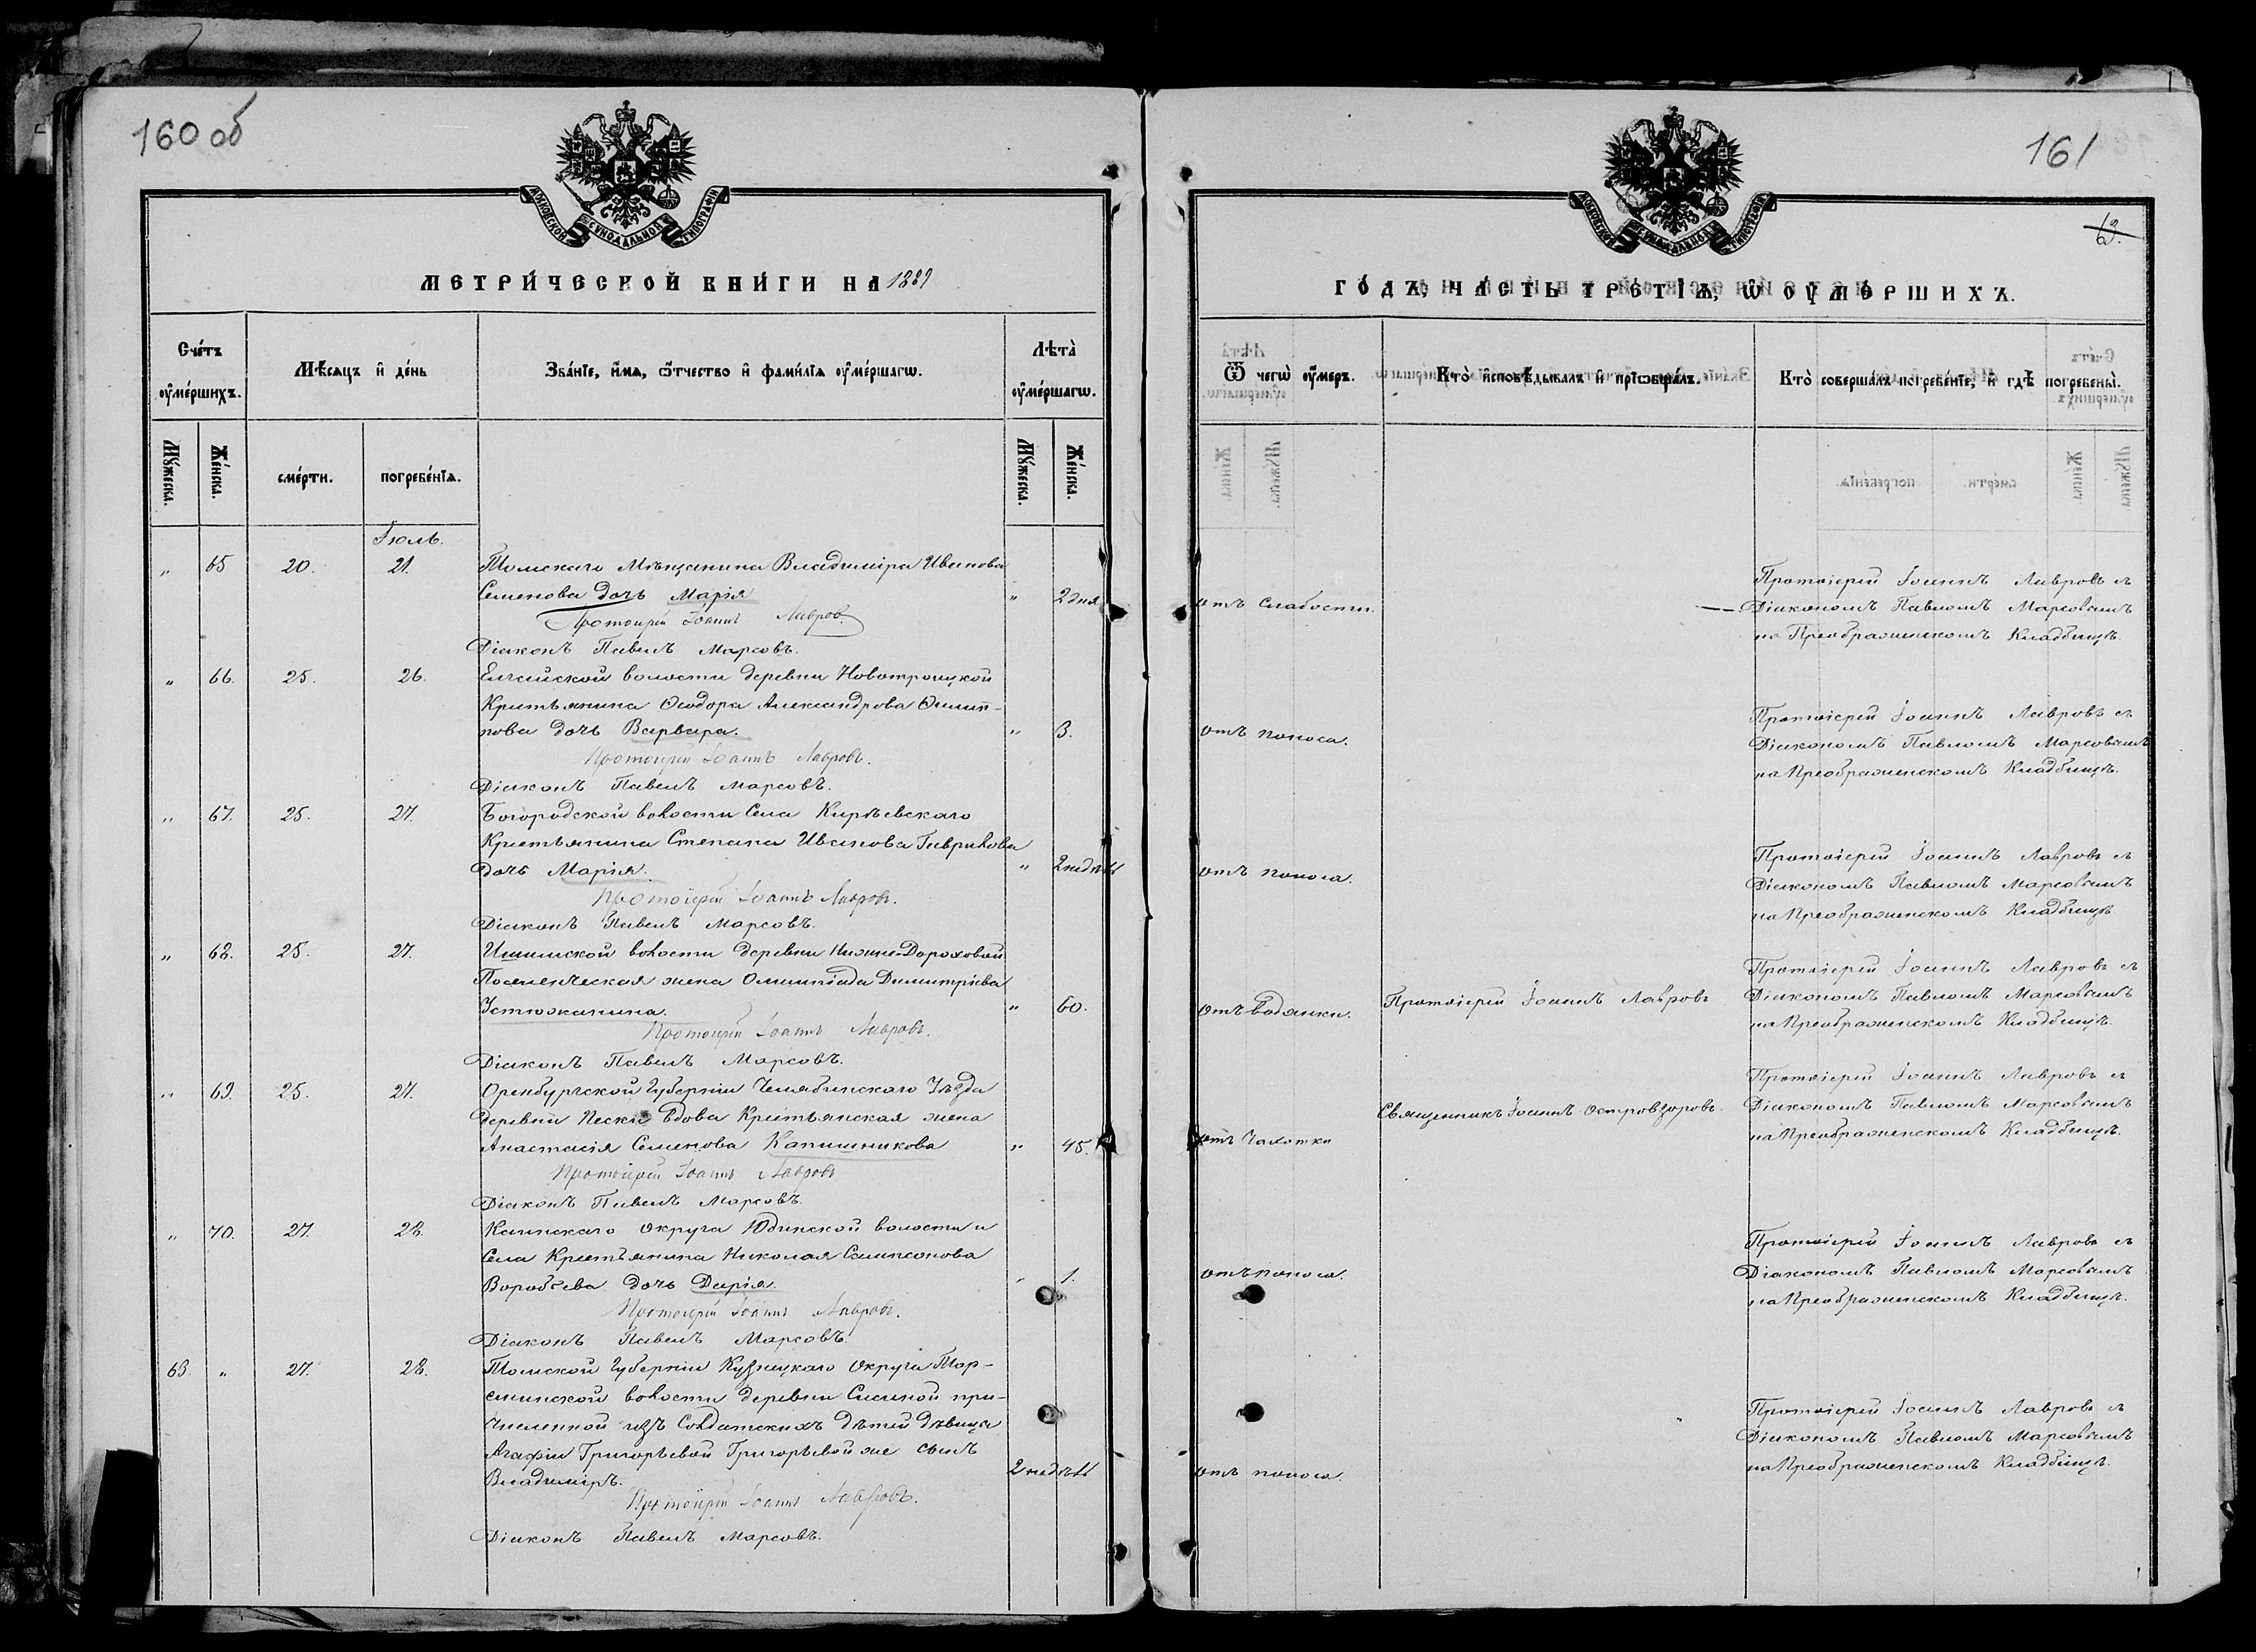 160 об
МОСКОВСКОЙ СУНОДАЛЬНОЙ ТИПОГРАФІИ
МЕТРИ́ЧЕСКОЙ КНИ́ГИ НА 1889
Сче́тъ ᲂу҆ме́ршихъ.
Мѣ́сяцъ и҆ де́нь
Зва́нїе, и҆́мѧ, ѻ҆́тчество и҆ фамі́лїѧ ᲂу҆ме́ршагѡ.
Лѣта̀ ᲂу҆ме́ршагѡ.
Мꙋ́жеска.
Же́нска.
сме́рти.
погребе́нїѧ.
Мꙋ́жеска.
Же́нска.
Іюль.
„ 65 20. 21. Томскаго Мѣщанина Владиміра Иванова
Семенова дочь Марія „ 2 дня
Протоіерей Іоаннъ Лавровъ.
Діаконъ Павелъ Марсовъ.
„ 66. 25. 26. Елгайской волости деревни Новотроицкой
Крестьянина Ѳеодора Александрова Филип-
пова дочь Варвара. „ 3.
Протоіерей Іоаннъ Лавровъ.
Діаконъ Павелъ Марсовъ.
„ 67. 25. 27. Богородской волости Села Кирѣевскаго
Крестьянина Степана Иванова Гаврилова
дочь Марія. „ 2 недѣли
Протоіерей Іоаннъ Лавровъ.
Діаконъ Павелъ Марсовъ.
„ 68. 25. 27. Ишимской волости деревни Нижне-Дороховой
Поселенческая жена Олимпіада Димитріева
Устюжанина. „ 60.
Протоіерей Іоаннъ Лавровъ.
Діаконъ Павелъ Марсовъ.
„ 69. 25. 27. Оренбургской Губерніи Челябинскаго Уѣзда
деревни Пески вдова Крестьянская жена
Анастасія Семенова Капишникова „ 45.
Протоіерей Іоаннъ Лавровъ
Діаконъ Павелъ Марсовъ.
„ 70. 27. 28. Каинскаго округа Юдинской волости и
Села Крестьянина Николая Сампсонова
Воробьева дочь Дарія. „ 1.
Протоіерей Іоаннъ Лавровъ.
Діаконъ Павелъ Марсовъ.
63. „ 27. 28. Томской Губерніи Кузнецкаго округа Тар-
сминской волости деревни Сисиной при-
численной изъ Солдатскихъ дѣтей дѣвицы
Агафіи Григорьевой Григорьевой же сынъ
Владиміръ. 2 недѣли
Протоіерей Іоаннъ Лавровъ.
Діаконъ Павелъ Марсовъ.
161
МОСКОВСКОЙ СУНОДАЛЬНОЙ ТИПОГРАФІИ
ГО́ДЪ, ЧА́СТЬ ТРЕ́ТЇѦ, Ѡ҆ ОУ҆МЕ́РШИХЪ.
Ѿ чегѡ̀ ᲂу҆́меръ.
Кто̀ и҆сповѣ́дывалъ и҆ прїѡбща́лъ.
Кто̀ соверша́лъ погребе́нїе, и҆ гдѣ̀ погребены̀.
отъ слабости.
Протоіерей Іоаннъ Лавровъ съ
Діакономъ Павломъ Марсовымъ
на Преображенскомъ Кладбищѣ.
отъ поноса.
Протоіерей Іоаннъ Лавровъ съ
Діакономъ Павломъ Марсовымъ
на Преображенскомъ Кладбищѣ.
отъ поноса.
Протоіерей Іоаннъ Лавровъ съ
Діакономъ Павломъ Марсовымъ
на Преображенскомъ Кладбищѣ
отъ водянки. Протоіерей Іоаннъ Лавровъ
Протоіерей Іоаннъ Лавровъ съ
Діакономъ Павломъ Марсовымъ
на Преображенскомъ Кладбищѣ.
отъ чахотки Священникъ Іоаннъ Островзоровъ.
Протоіерей Іоаннъ Лавровъ съ
Діакономъ Павломъ Марсовымъ
на Преображенскомъ Кладбищѣ.
отъ поноса.
Протоіерей Іоаннъ Лавровъ съ
Діакономъ Павломъ Марсовымъ
на Преображенскомъ Кладбищѣ.
отъ поноса.
Протоіерей Іоаннъ Лавровъ съ
Діакономъ Павломъ Марсовымъ
на Преображенскомъ Кладбищѣ.